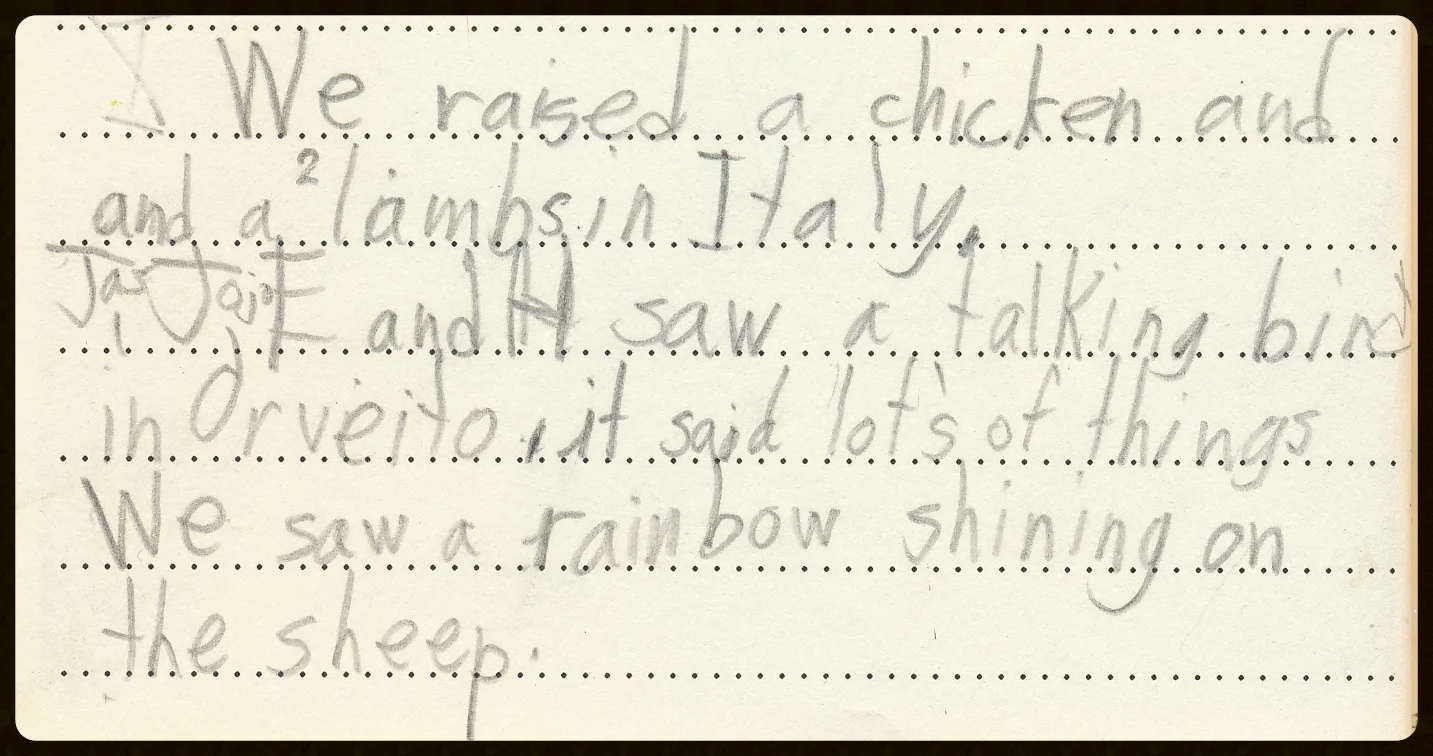 We raised a chicken and
and a 2 lambs in Italy.
and I saw a talking bird
in Orveito, it said lot's of things
We saw a rainbow shining on
the sheep.